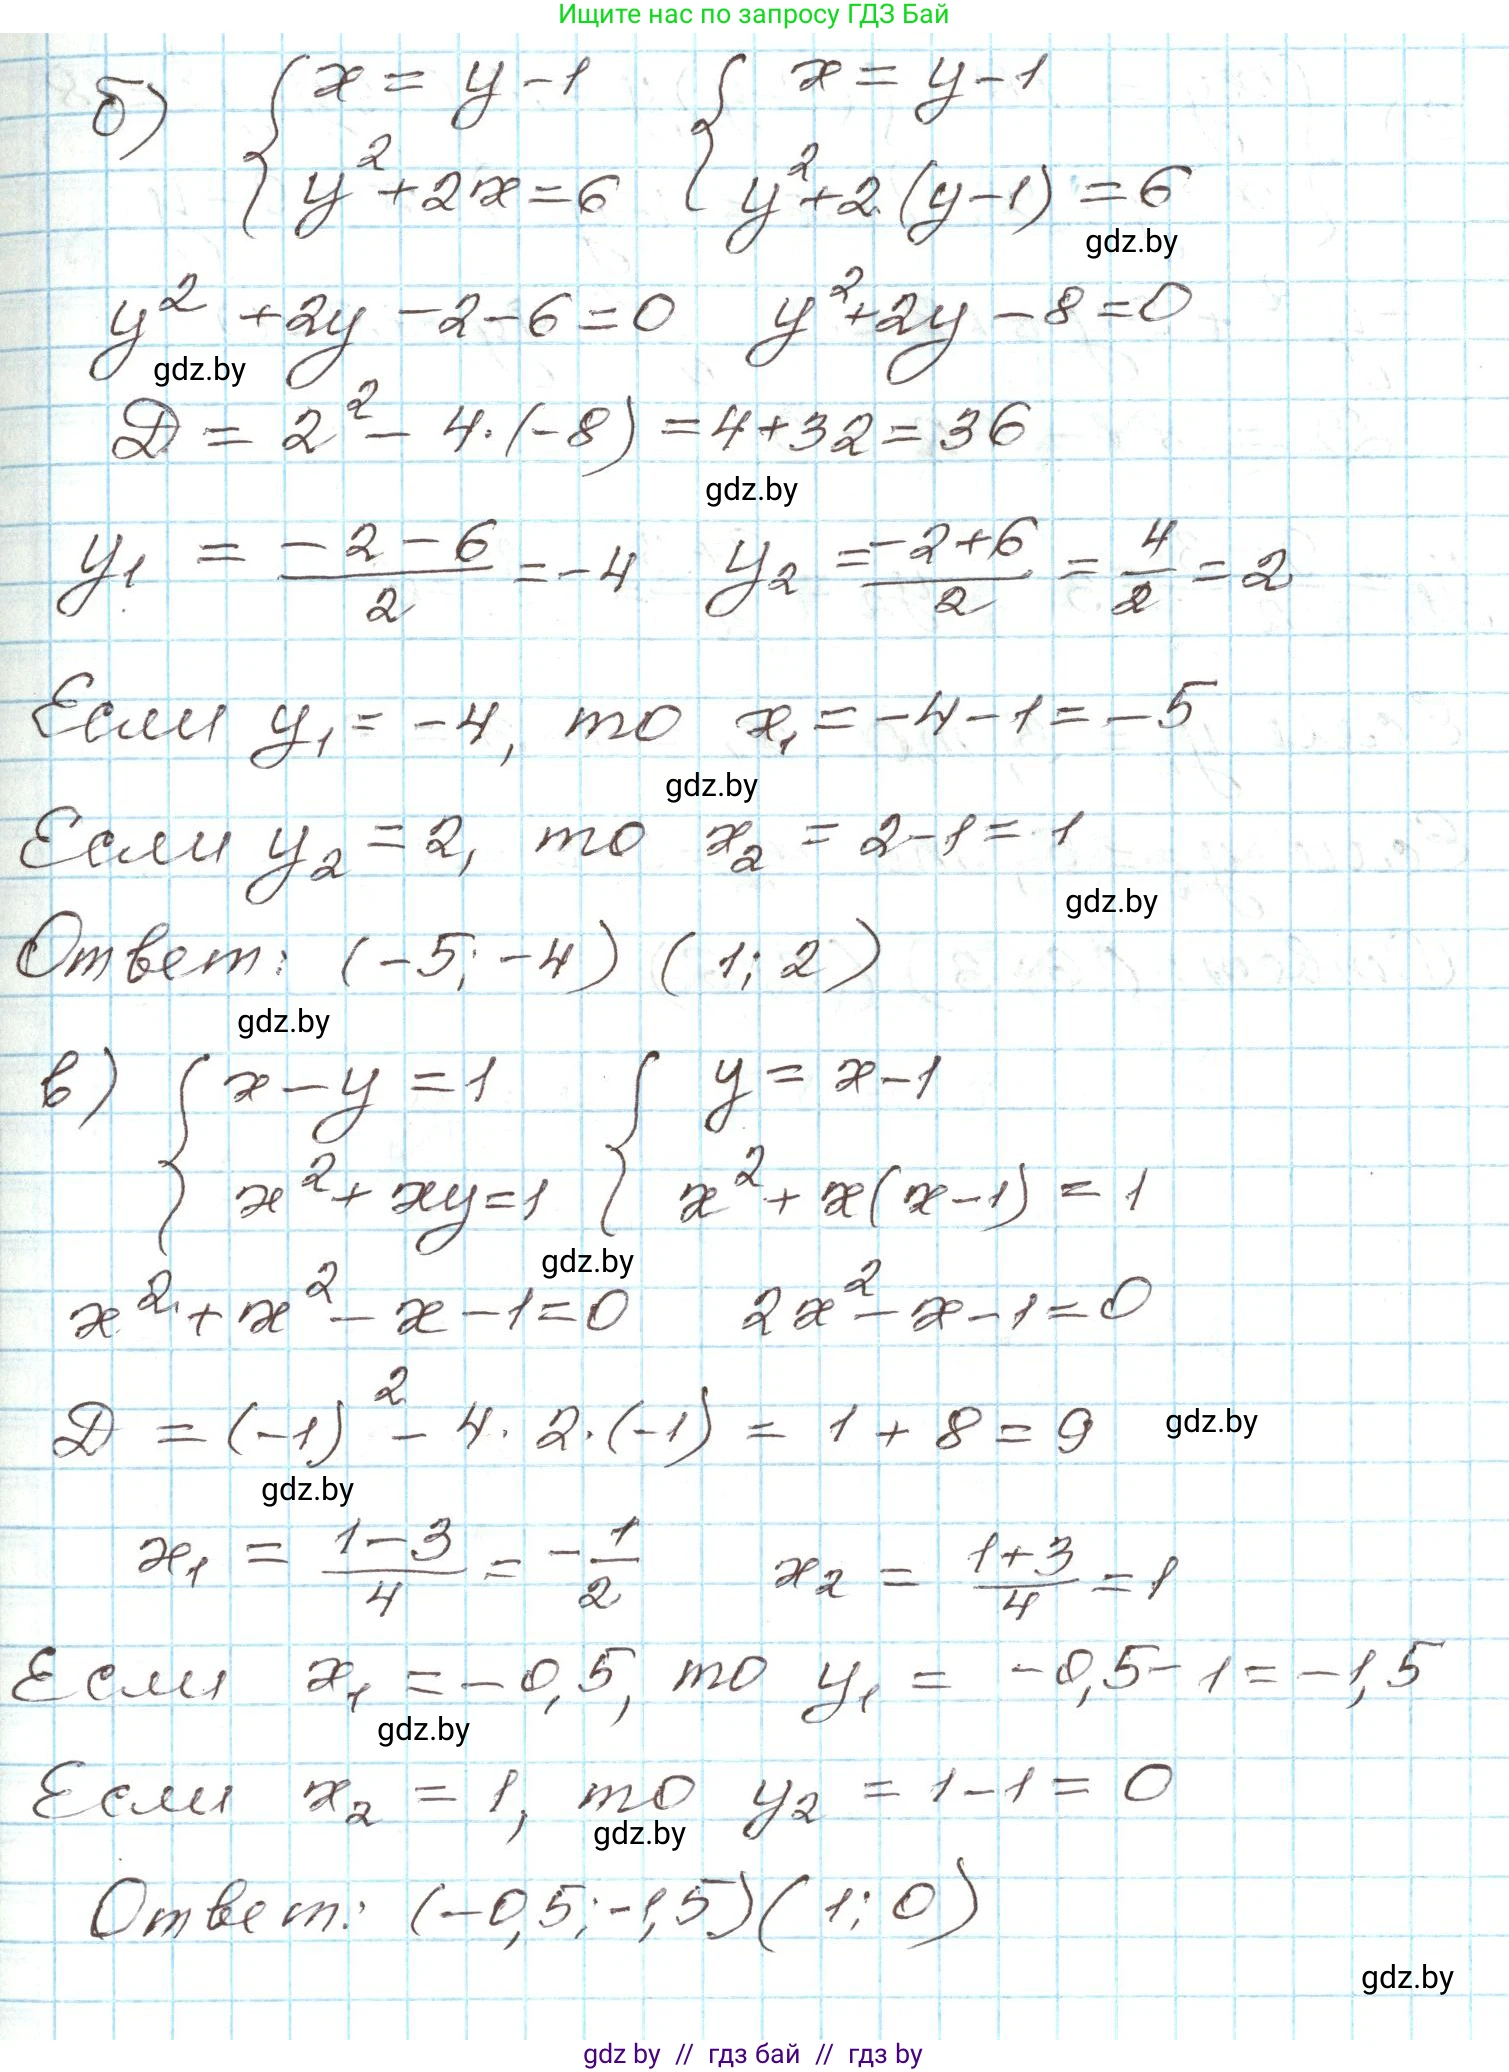 Ищите нас по запросу ГДЗ Бай
б) { x = y - 1 { x = y - 1
y² + 2x = 6 y² + 2·(y - 1) = 6
gdz.by
y² + 2y - 2 - 6 = 0 y² + 2y - 8 = 0
gdz.by
Д = 2² - 4·(-8) = 4 + 32 = 36
gdz.by
y₁ = (-2 - 6)/2 = -4 y₂ = (-2 + 6)/2 = 4/2 = 2
Если y₁ = -4, то x₁ = -4 - 1 = -5
gdz.by
Если y₂ = 2, то x₂ = 2 - 1 = 1
gdz.by
Ответ: (-5; -4) (1; 2)
gdz.by
в) { x - y = 1 { y = x - 1
x² + xy = 1 x² + x(x - 1) = 1
gdz.by
x² + x² - x - 1 = 0 2x² - x - 1 = 0
Д = (-1)² - 4·2·(-1) = 1 + 8 = 9
gdz.by
gdz.by
x₁ = (1 - 3)/4 = -1/2 x₂ = (1 + 3)/4 = 1
Если x₁ = -0,5, то y₁ = -0,5 - 1 = -1,5
gdz.by
Если x₂ = 1, то y₂ = 1 - 1 = 0
gdz.by
Ответ: (-0,5; -1,5) (1; 0)
gdz.by
gdz by // гдз бай // гдз by